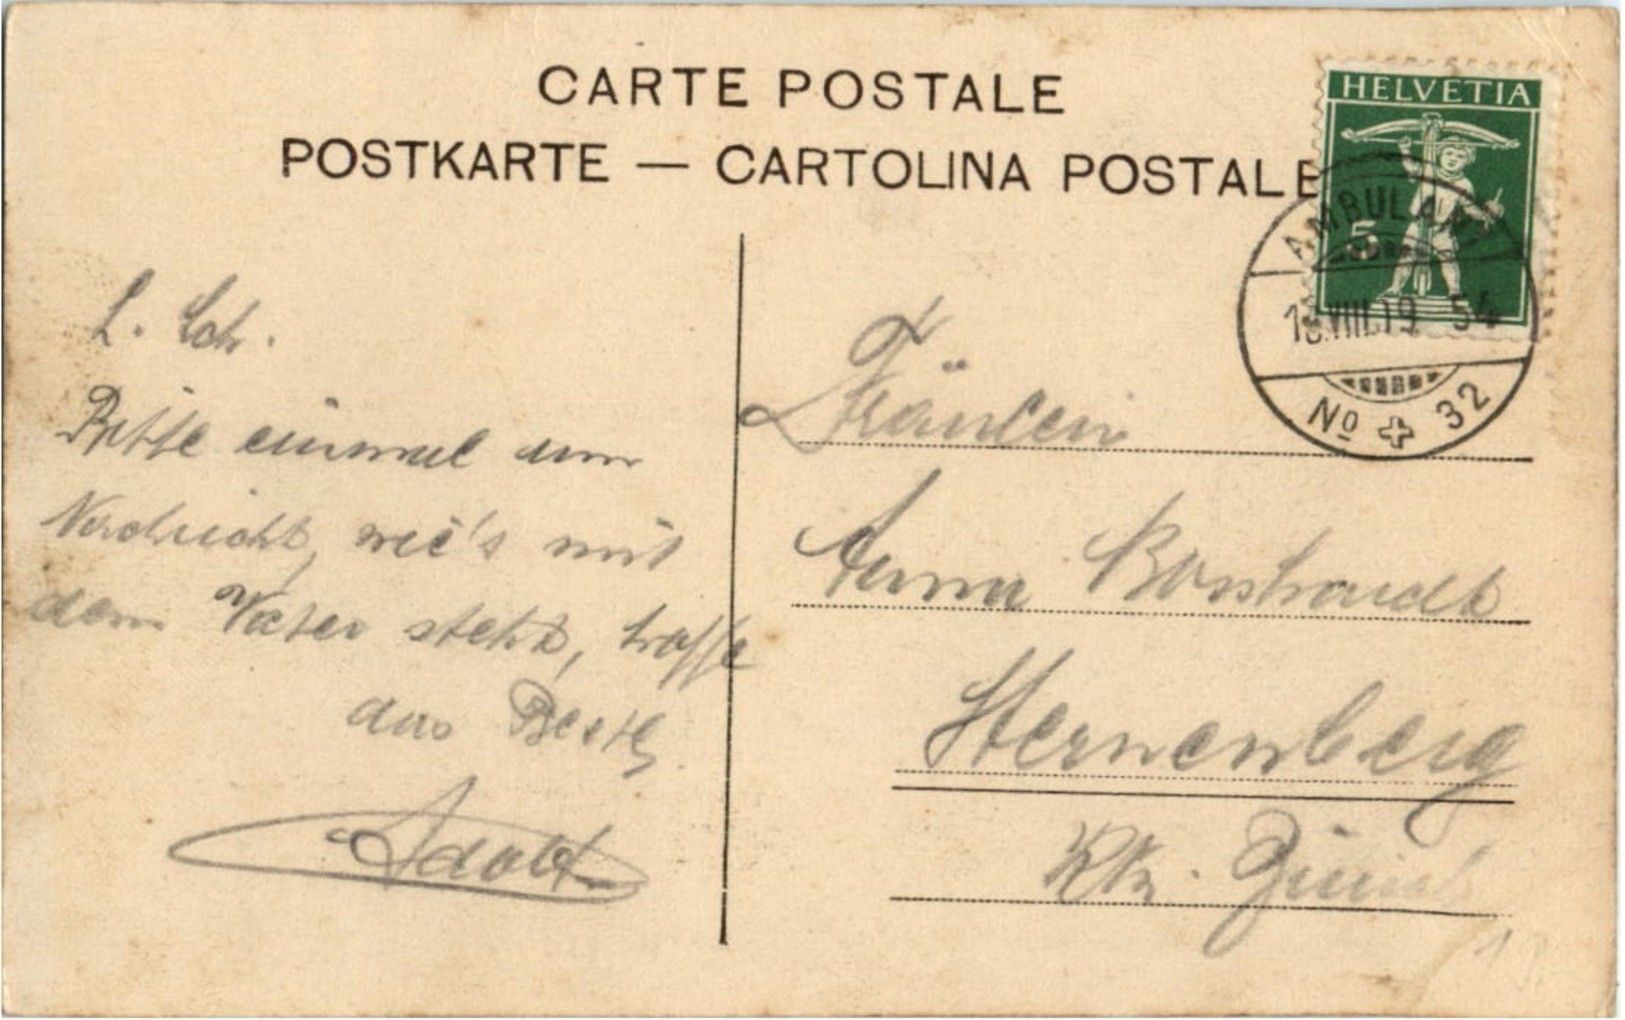 CARTE POSTALE
POSTKARTE — CARTOLINA POSTALE
HELVETIA
5
AMBULANT
VIII.19 54
No 32
L. Sch.
Bitte einmal um
Nachricht, wie's mit
dem Vater steht, hoffe
das Beste.
Adolf
Fräulein
Anna Bosshardt
Sternenberg
Kt. Zürich